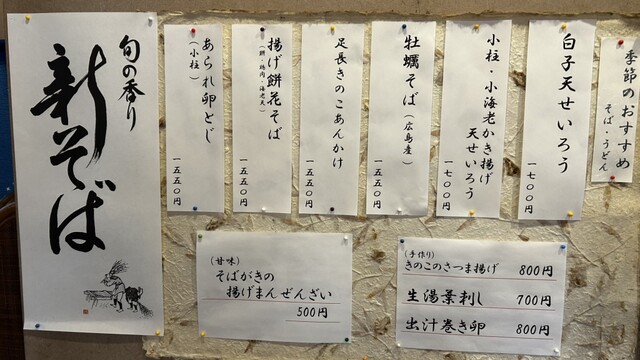 季節のおすすめ
そば・うどん
白子天せいろう
一七〇〇円
小柱・小海老かき揚げ
天せいろう
一七〇〇円
牡蠣そば(広島産)
一五五〇円
足長きのこあんかけ
一五五〇円
揚げ餅花そば
(餅・鶏肉・海老天)
一五五〇円
あられ卵とじ
(小柱)
一五五〇円
旬の香り
新そば
(甘味)
そばがきの
揚げまんぜんざい
500円
(手作り)
きのこのさつま揚げ 800円
生湯葉刺し 700円
出汁巻き卵 800円